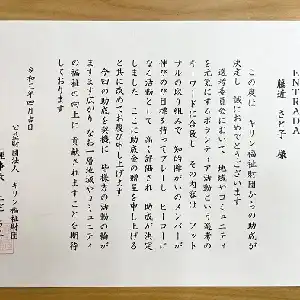 ENTRADA
藤道 さと子 様
この度は キリン福祉財団からの助成が
決定し 誠におめでとうございます
選考委員会において 地域やコミュニティ
を元気にするボランティア活動という選考の
キーワードに合致し その内容は フット
サルの取り組みで 知的障がいのメンバーが
伸び伸び目標を持ってプレーし ヒーローに
なく活動として 高く評価され 助成が決定
しました ここに助成金の贈呈を申し上げる
と共に改めてお慶び申し上げます
今回の助成を契機に 皆様方の活動の輪が
ますます広がり なお一層地域やコミュニティ
の福祉の向上に 貢献されますことを期待
しております
令和二年四月吉日
公益財団法人 キリン福祉財団